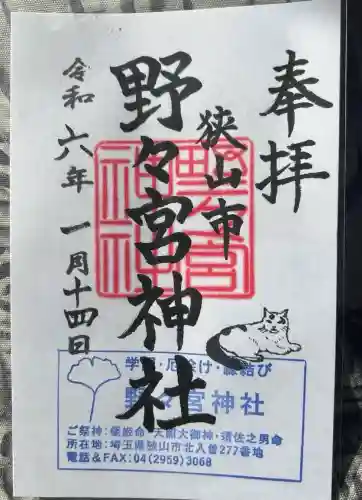 奉拝
狭山市
野々宮神社
令和六年一月十四日
野々宮神社
学問・厄除け・縁結び
野々宮神社
ご祭神：倭姫命・天照大御神・須佐之男命
所在地：埼玉県狭山市北入曽277番地
電話＆FAX：04(2959)3068